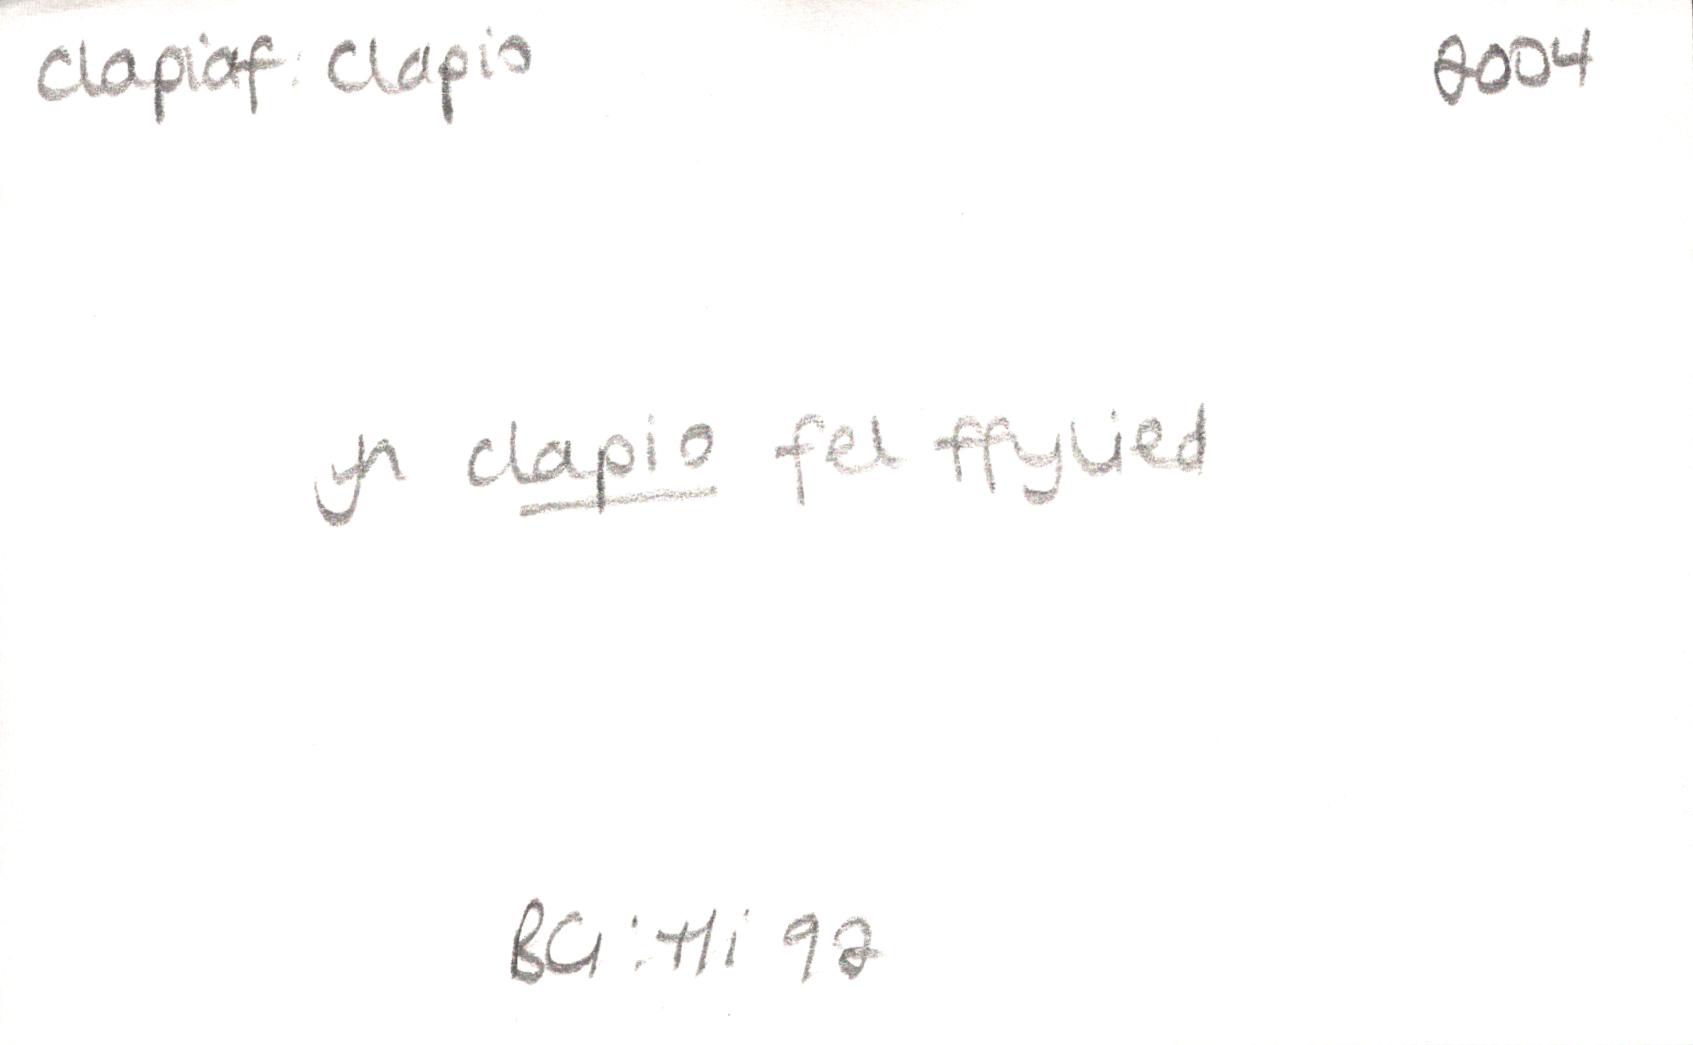 clapiaf: clapio 2004
yn clapio fel ffylied
BG: Hi 92